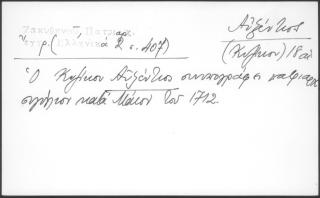 Ζακυθηνοῦ, Πατριαρχ.
ἔγγρ. (Ἑλληνικὰ 2 σ. 407)
Αὐξέντιος
(Κυζίκου) 18 αἰ
Ὁ Κυζίκου Αὐξέντιος συνυπογράφει πατριαρχ
σιγίλλιον κατὰ Μάιον τοῦ 1712.